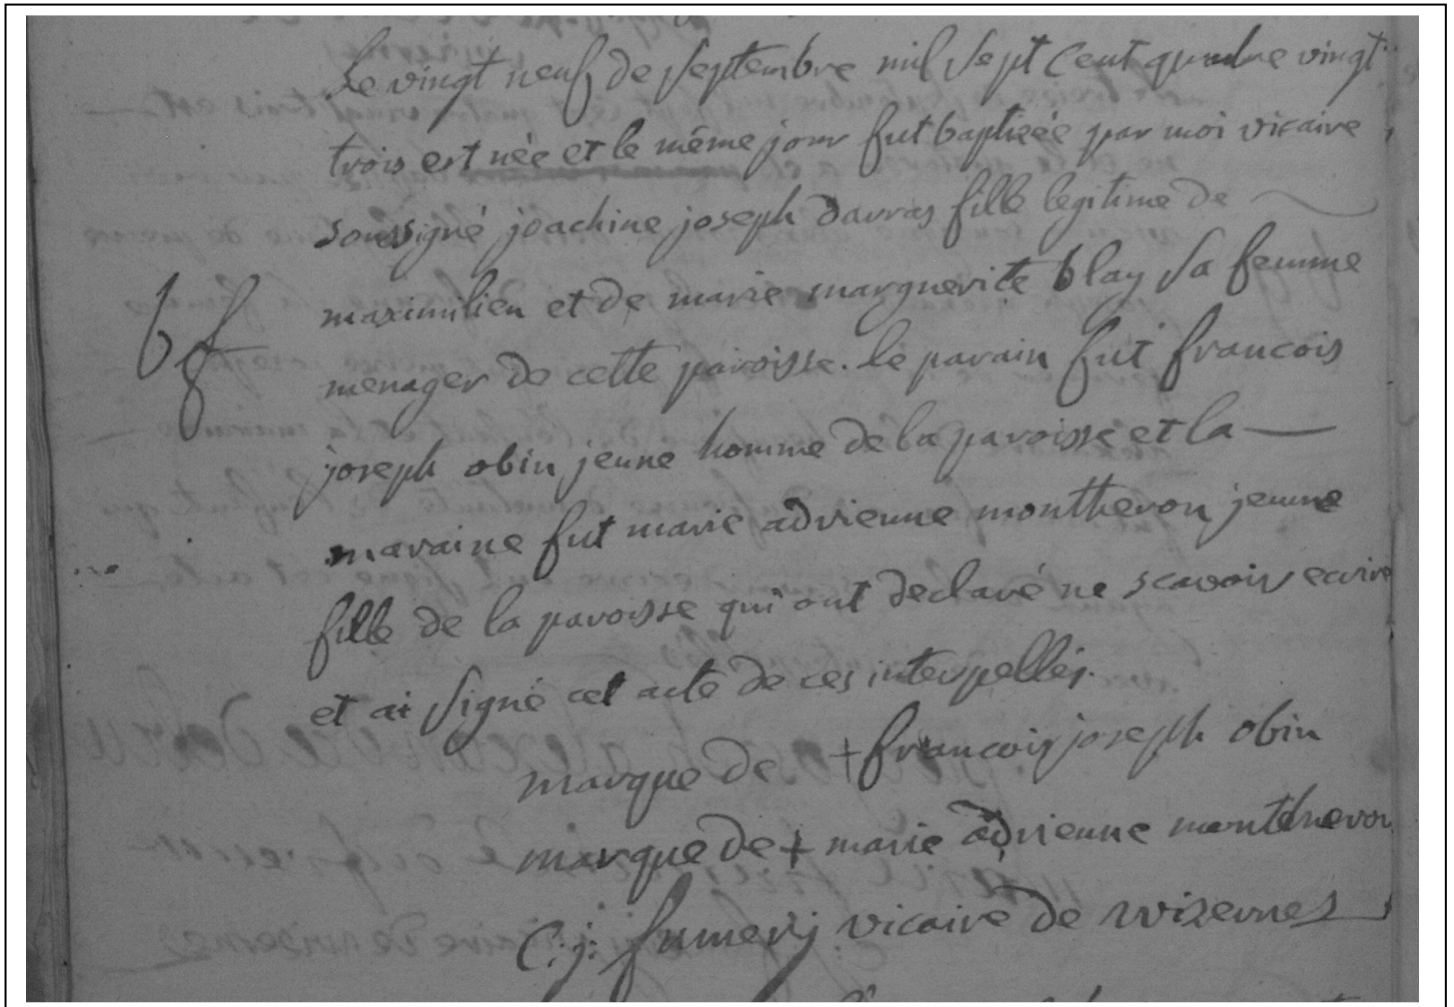 Le vingt neuf de septembre mil sept cent quatre vingt
trois est née et le même jour fut baptisée par moi vicaire
soussigné joachine joseph davras fille legitime de
maximilien et de marie marguerite blay sa femme
bf
menager de cette paroisse. le parain fut francois
joseph obin jeune homme de la paroisse et la
maraine fut marie adrienne montheron jeune
fille de la paroisse qui ont declaré ne scavoir ecrire
et ai signé cet acte de ces interpellés.
marque de + francois joseph obin
marque de + marie adrienne
C: j: fumery vicaire de wizernes